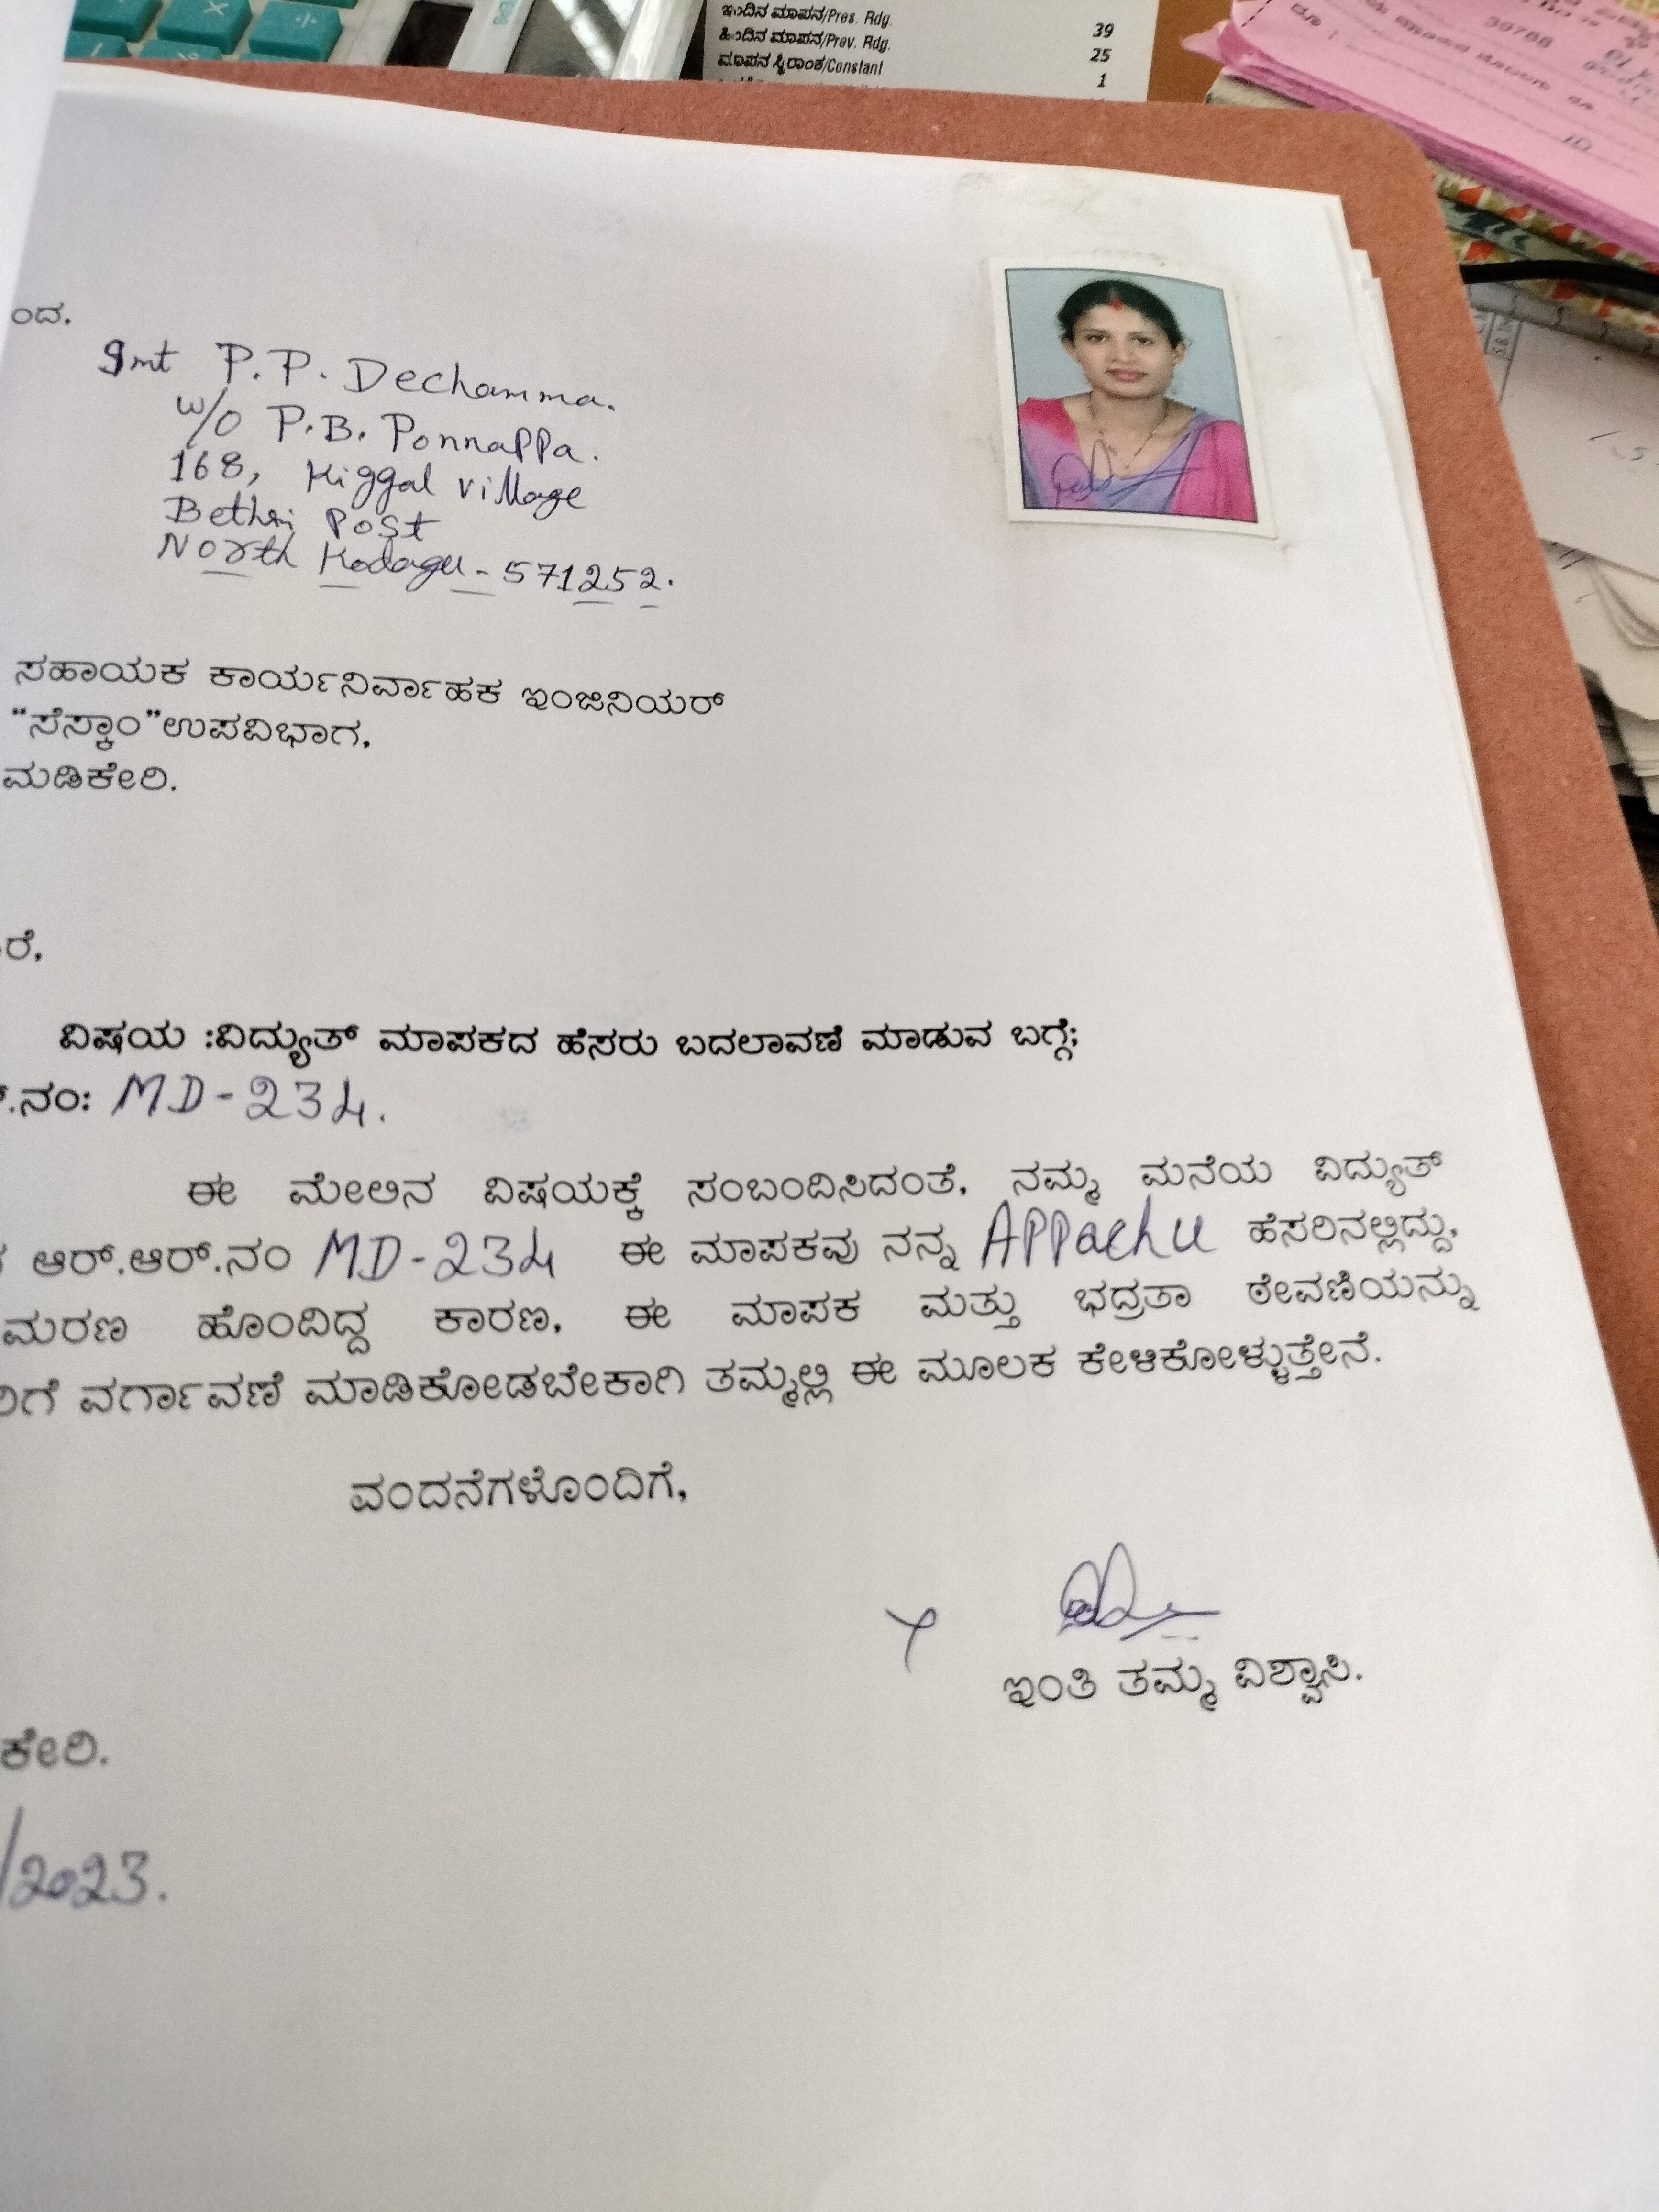 ಇಂದಿನ ಮಾಪನ/Pres. Rdg. 39
ಹಿಂದಿನ ಮಾಪನ/Prev. Rdg. 25
ಮಾಪನ ಸ್ಥಿರಾಂಕ/Constant 1
39788
10
ಂದ.
Smt P.P. Dechamma.
W/O P.B. Ponnappa.
168, Kiggal village
Bethri Post
North Kodagu - 571252.
ಸಹಾಯಕ ಕಾರ್ಯನಿರ್ವಾಹಕ ಇಂಜಿನಿಯರ್
“ಸೆಸ್ಕಾಂ”ಉಪವಿಭಾಗ,
ಮಡಿಕೇರಿ.
ರೆ,
ವಿಷಯ :ವಿದ್ಯುತ್ ಮಾಪಕದ ಹೆಸರು ಬದಲಾವಣೆ ಮಾಡುವ ಬಗ್ಗೆ;
.ನಂ: MD-234.
ಈ ಮೇಲಿನ ವಿಷಯಕ್ಕೆ ಸಂಬಂದಿಸಿದಂತೆ, ನಮ್ಮ ಮನೆಯ ವಿದ್ಯುತ್
ಆರ್.ಆರ್.ನಂ MD-234 ಈ ಮಾಪಕವು ನನ್ನ APPachu ಹೆಸರಿನಲ್ಲಿದ್ದು,
ಮರಣ ಹೊಂದಿದ್ದ ಕಾರಣ, ಈ ಮಾಪಕ ಮತ್ತು ಭದ್ರತಾ ಠೇವಣಿಯನ್ನು
ರಿಗೆ ವರ್ಗಾವಣೆ ಮಾಡಿಕೋಡಬೇಕಾಗಿ ತಮ್ಮಲ್ಲಿ ಈ ಮೂಲಕ ಕೇಳಿಕೋಳ್ಳುತ್ತೇನೆ.
ವಂದನೆಗಳೊಂದಿಗೆ,
ಇಂತಿ ತಮ್ಮ ವಿಶ್ವಾಸಿ.
ಕೇರಿ.
/2023.